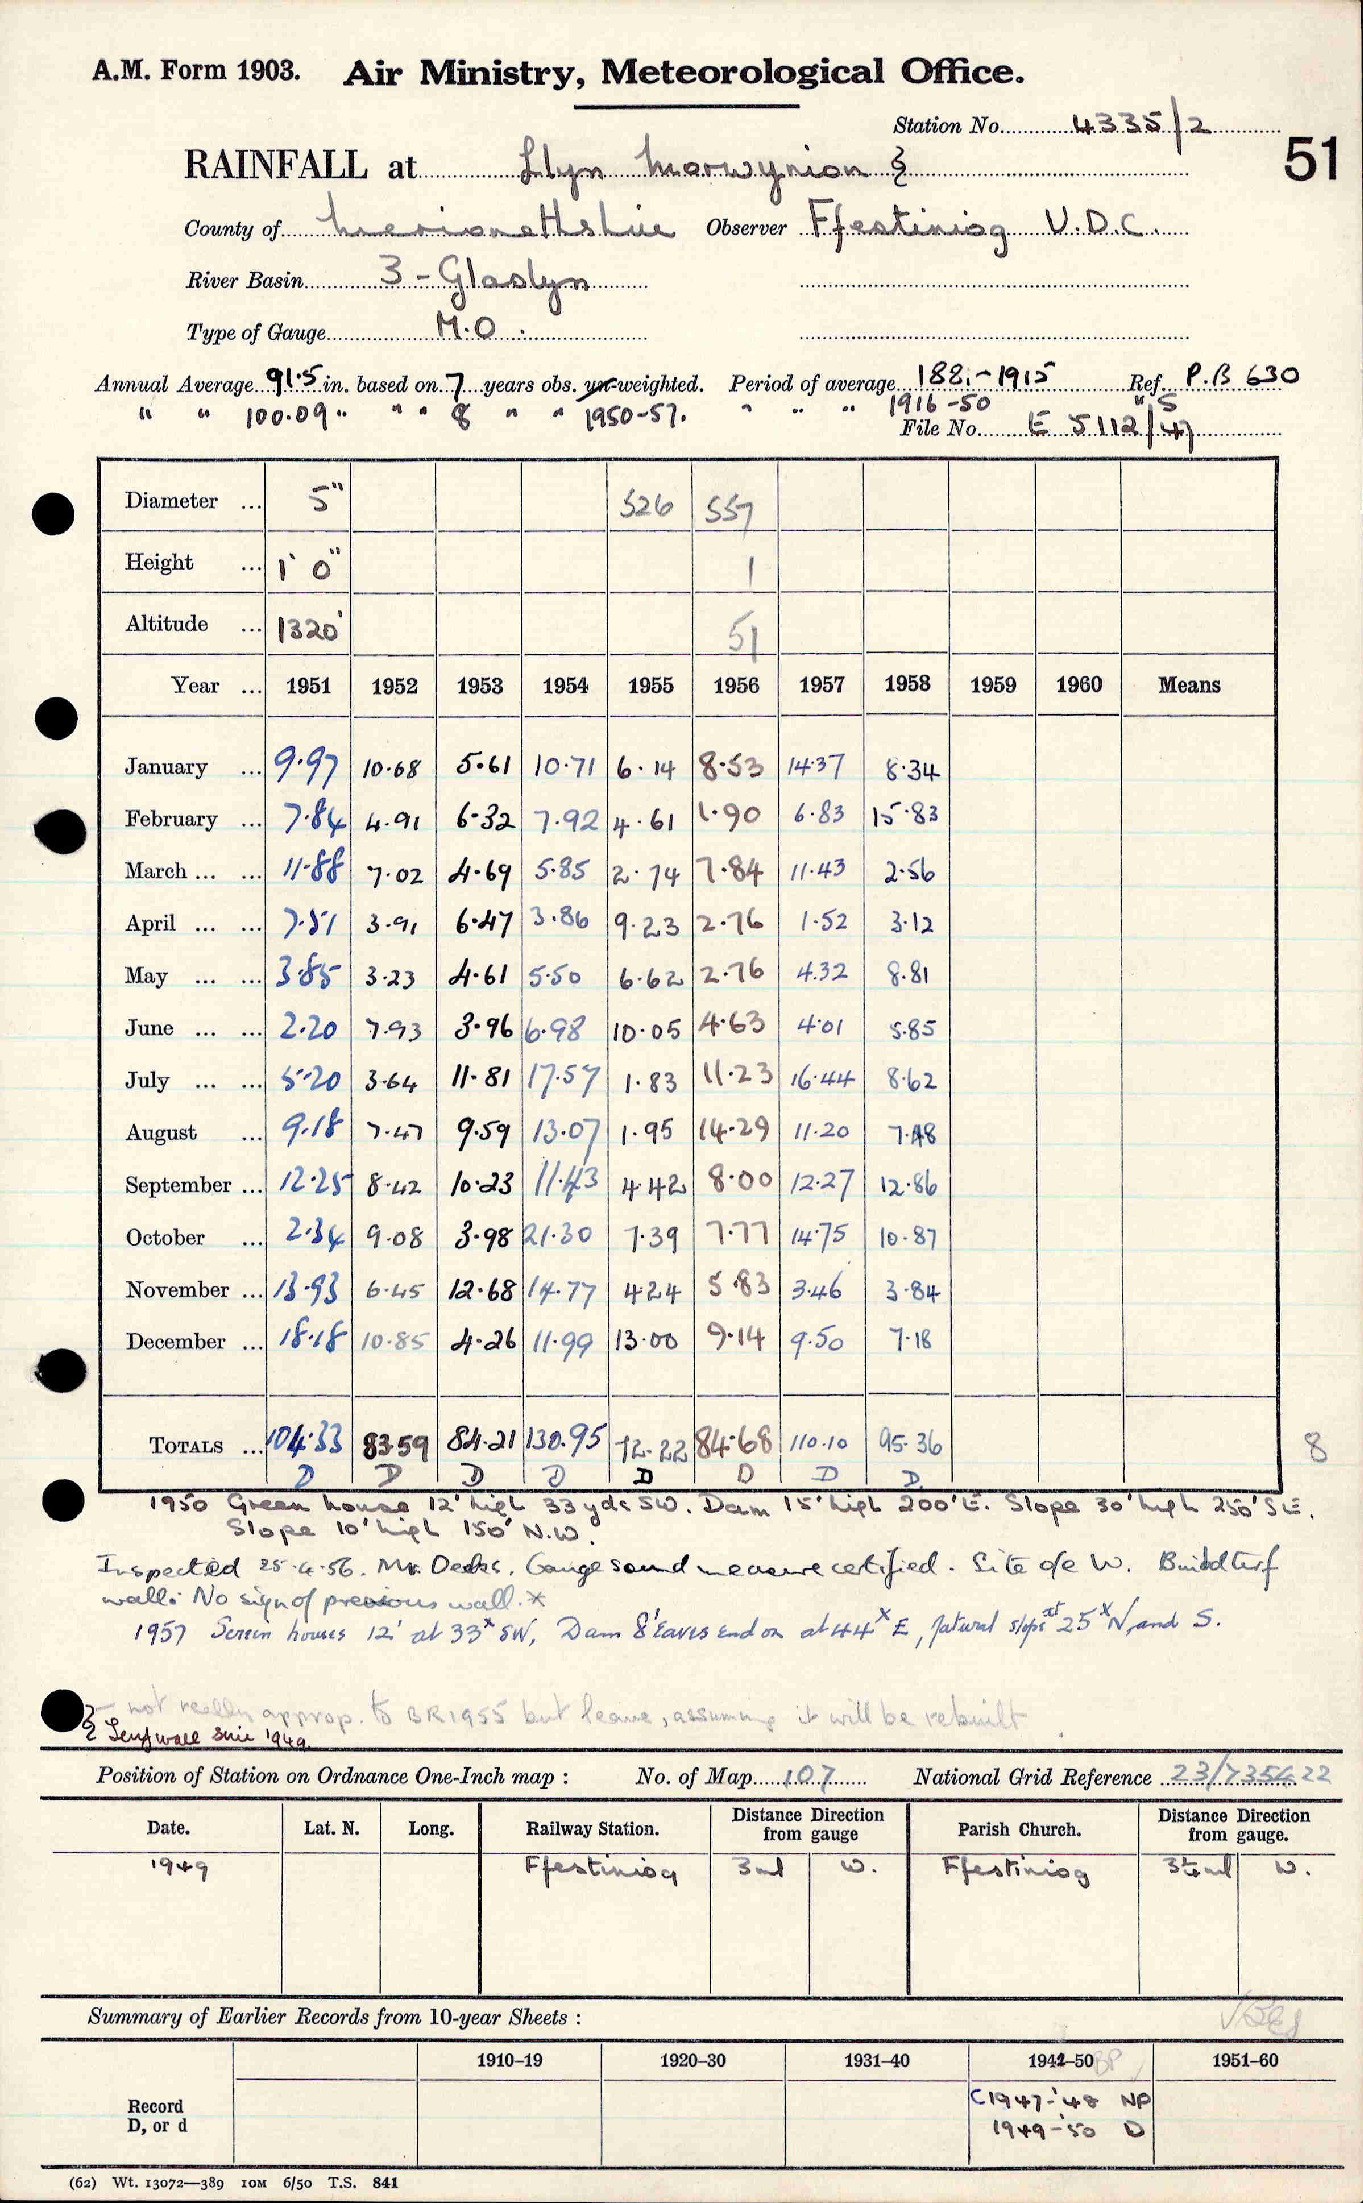 A.M. Form 1903. Air Ministry, Meteorological Office.
Station No. 4335/2
51
RAINFALL at Llyn Morwynion
County of Merionethshire Observer Ffestiniog U.D.C.
River Basin 3 - Glaslyn
Type of Gauge M.O.
Annual Average 91.5 in. based on 7 years obs. un-weighted. Period of average 1881-1915 Ref. P.B 630
" " 100.09 " " " 8 " " 1950-57. " " " 1916-50 " 5
File No. E 5112/47
Diameter ... 5" 526 557
Height ... 1' 0" 1
Altitude ... 1320' 51
Year ... 1951 1952 1953 1954 1955 1956 1957 1958 1959 1960 Means
January ... 9.97 10.68 5.61 10.71 6.14 8.53 14.37 8.34
February ... 7.84 4.91 6.32 7.92 4.61 1.90 6.83 15.83
March ... ... 11.88 7.02 4.69 5.85 2.74 7.84 11.43 2.56
April ... ... 7.51 3.91 6.47 3.86 9.23 2.76 1.52 3.12
May ... ... 3.85 3.23 4.61 5.50 6.62 2.76 4.32 8.81
June ... ... 2.20 7.93 3.96 6.98 10.05 4.63 4.01 5.85
July ... ... 5.20 3.64 11.81 17.57 1.83 11.23 16.44 8.62
August ... 9.18 7.47 9.59 13.07 1.95 14.29 11.20 7.48
September ... 12.25 8.42 10.23 11.43 4.42 8.00 12.27 12.86
October ... 2.34 9.08 3.98 21.30 7.39 7.77 14.75 10.87
November ... 13.93 6.45 12.68 14.77 4.24 5.83 3.46 3.84
December ... 18.18 10.85 4.26 11.99 13.00 9.14 9.50 7.18
TOTALS ... 104.33 83.59 84.21 130.95 72.22 84.68 110.10 95.36 8
D D D D D D D D
1950 Green house 12' high 33 yds SW. Dam 15' high 200' E. Slope 30' high 250' SE.
Slope 10' high 150' N.W.
Inspected 25.4.56. Mr. Gauge sound measure certified. Site o/e W. Build turf
wall. No sign of previous wall. x
1957 Screen houses 12' at 33x SW, Dam 8' Eaves end on at 44x E, Natural slope at 25x N and S.
not really approp. to BR 1955 but leave, assuming it will be rebuilt
Turf wall since 1949.
Position of Station on Ordnance One-Inch map : No. of Map 107 National Grid Reference 23/735422
Date. Lat. N. Long. Railway Station. Distance Direction from gauge Parish Church. Distance Direction from gauge.
1949 Ffestiniog 3 ml W. Ffestiniog 3¼ ml W.
Summary of Earlier Records from 10-year Sheets :
1910–19 1920–30 1931–40 1941–50 1951–60
Record
D, or d
C1947-'48 NP
1949-'50 D
(62) Wt. 13072—389 10M 6/50 T.S. 841